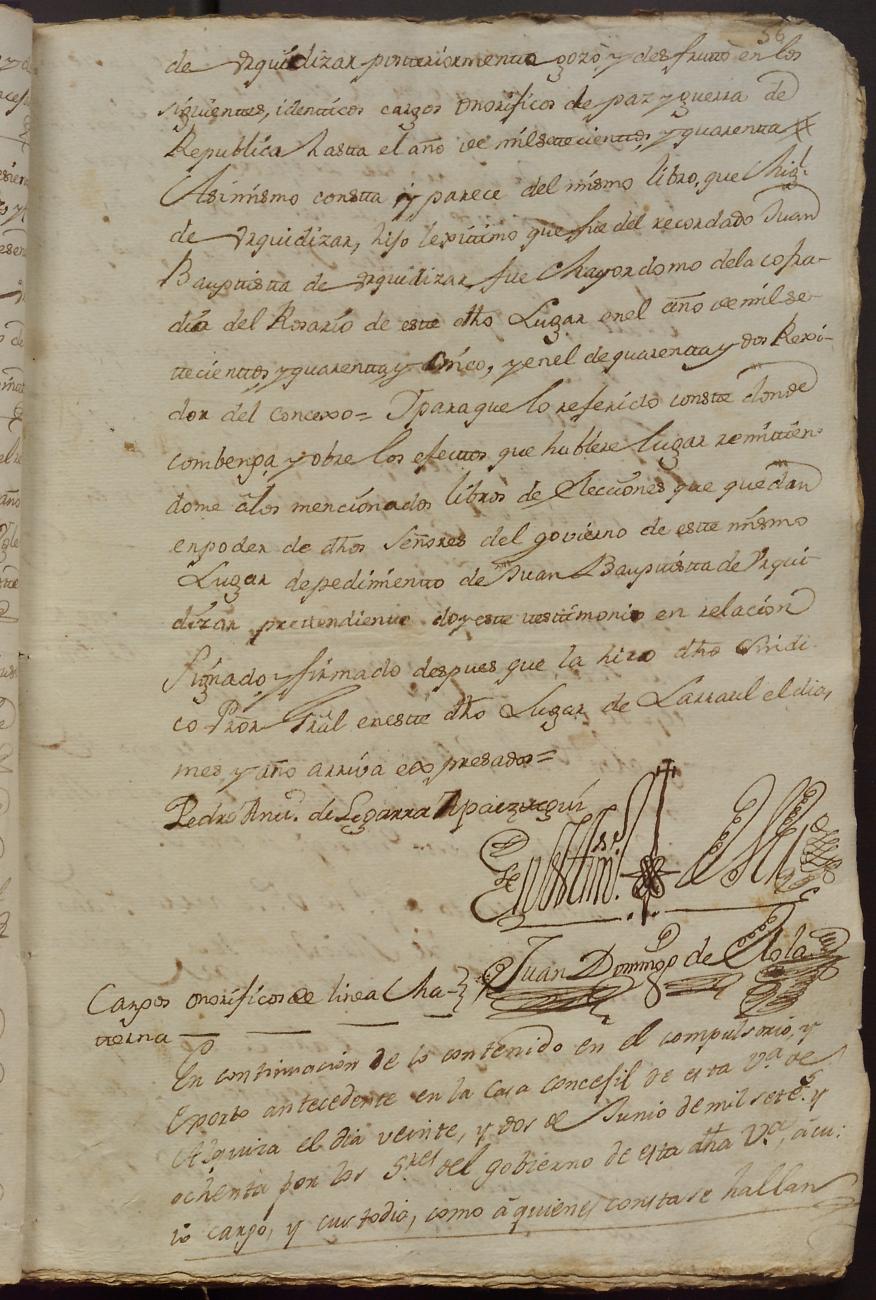 56
de Urquidizar posteriormente gozò y desfrutò en los
siguientes, identicos cargos onorificos de paz y guerra de
Republica hasta el año de mil settecienttos, y quarentta
Asimismo constta y parece del mismo libro, que Migl.
de Urquidizar, hijo lexitimo que fue del recordado Juan
Bauptistta de Urquidizar fue Mayordomo dela cofra-
dia del Rosario de este dho Lugar enel año de mil se-
ttecienttos y quarentta y cinco, y enel de quarentta y dos Rexi-
dor del concexo= Y para que lo referido constte donde
combenga y obre los efecttos que hubiere lugar remittien-
dome à los mencionados libros de Elecciones que quedan
en poder de dhos Señores del govierno de estte mismo
Lugar de pedimientto de Juan Bauptistta de Urqui-
dizar prettendiente doy este testimonio en relacion
signado y firmado despues que la hizo dho Sindi-
co Pror Gral en estte dho Lugar de Larraul el dia,
mes, y año arriva expresados=
Pedro Antt. de Legarra Apaezttegui
En testtim.
Juan Domingo de
Cargos onorificos de linea Ma-
tterna
En continuacion de lo contenido en el compulsorio, y
Exorto antecedente en la Casa concegil de esta V.a de
el dia veinte, y dos de Junio de mil setes. y
ochenta por los S.res del gobierno de esta dha V.a, àcu-
io cargo, y custodia, como à quienes consta se hallan